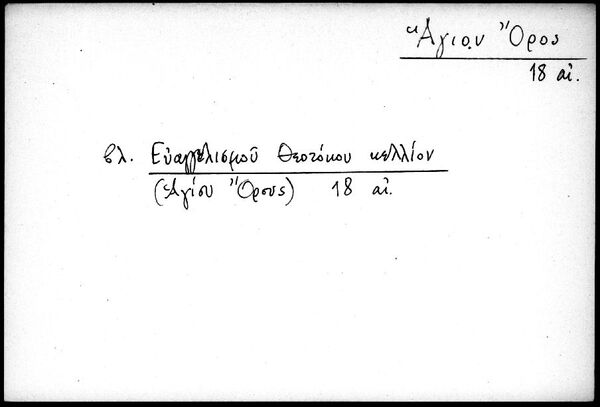 Ἅγιον Ὄρος
18 αἰ.
βλ. Εὐαγγελισμοῦ Θεοτόκου κελλίον
(Ἁγίου Ὄρους) 18 αἰ.